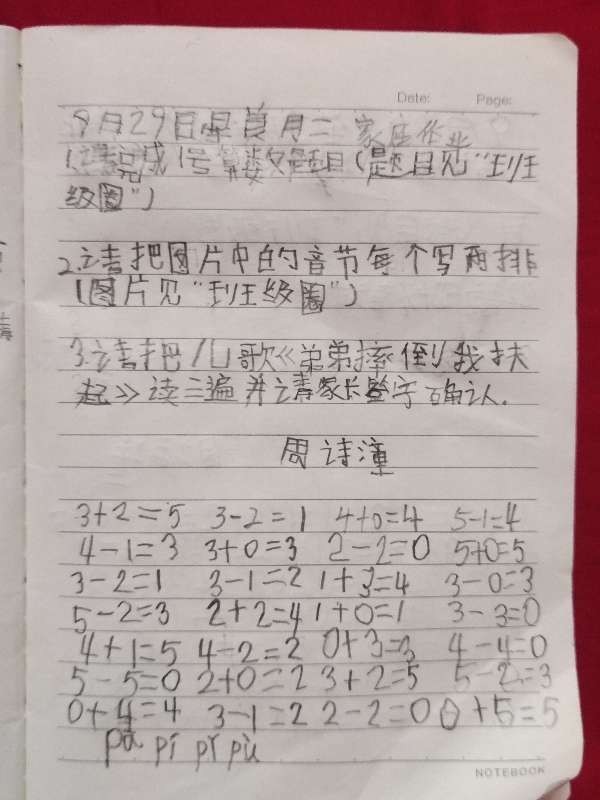 Date: Page:
9月29日星期二 家庭作业
1.请完成1号算数题目(题目见"班
级圈")
2.请把图片中的音节每个写两排
(图片见"班级圈")
3.请把儿歌《弟弟摔倒我扶
起》读三遍并请家长签字确认.
周诗潼
3+2=5 3-2=1 4+0=4 5-1=4
4-1=3 3+0=3 2-2=0 5+0=5
3-2=1 3-1=2 1+3=4 3-0=3
5-2=3 2+2=4 1+0=1 3-3=0
4+1=5 4-2=2 0+3=3 4-4=0
5-5=0 2+0=2 3+2=5 5-2=3
0+4=4 3-1=2 2-2=0 0+5=5
pā pí pǐ pù
NOTEBOOK